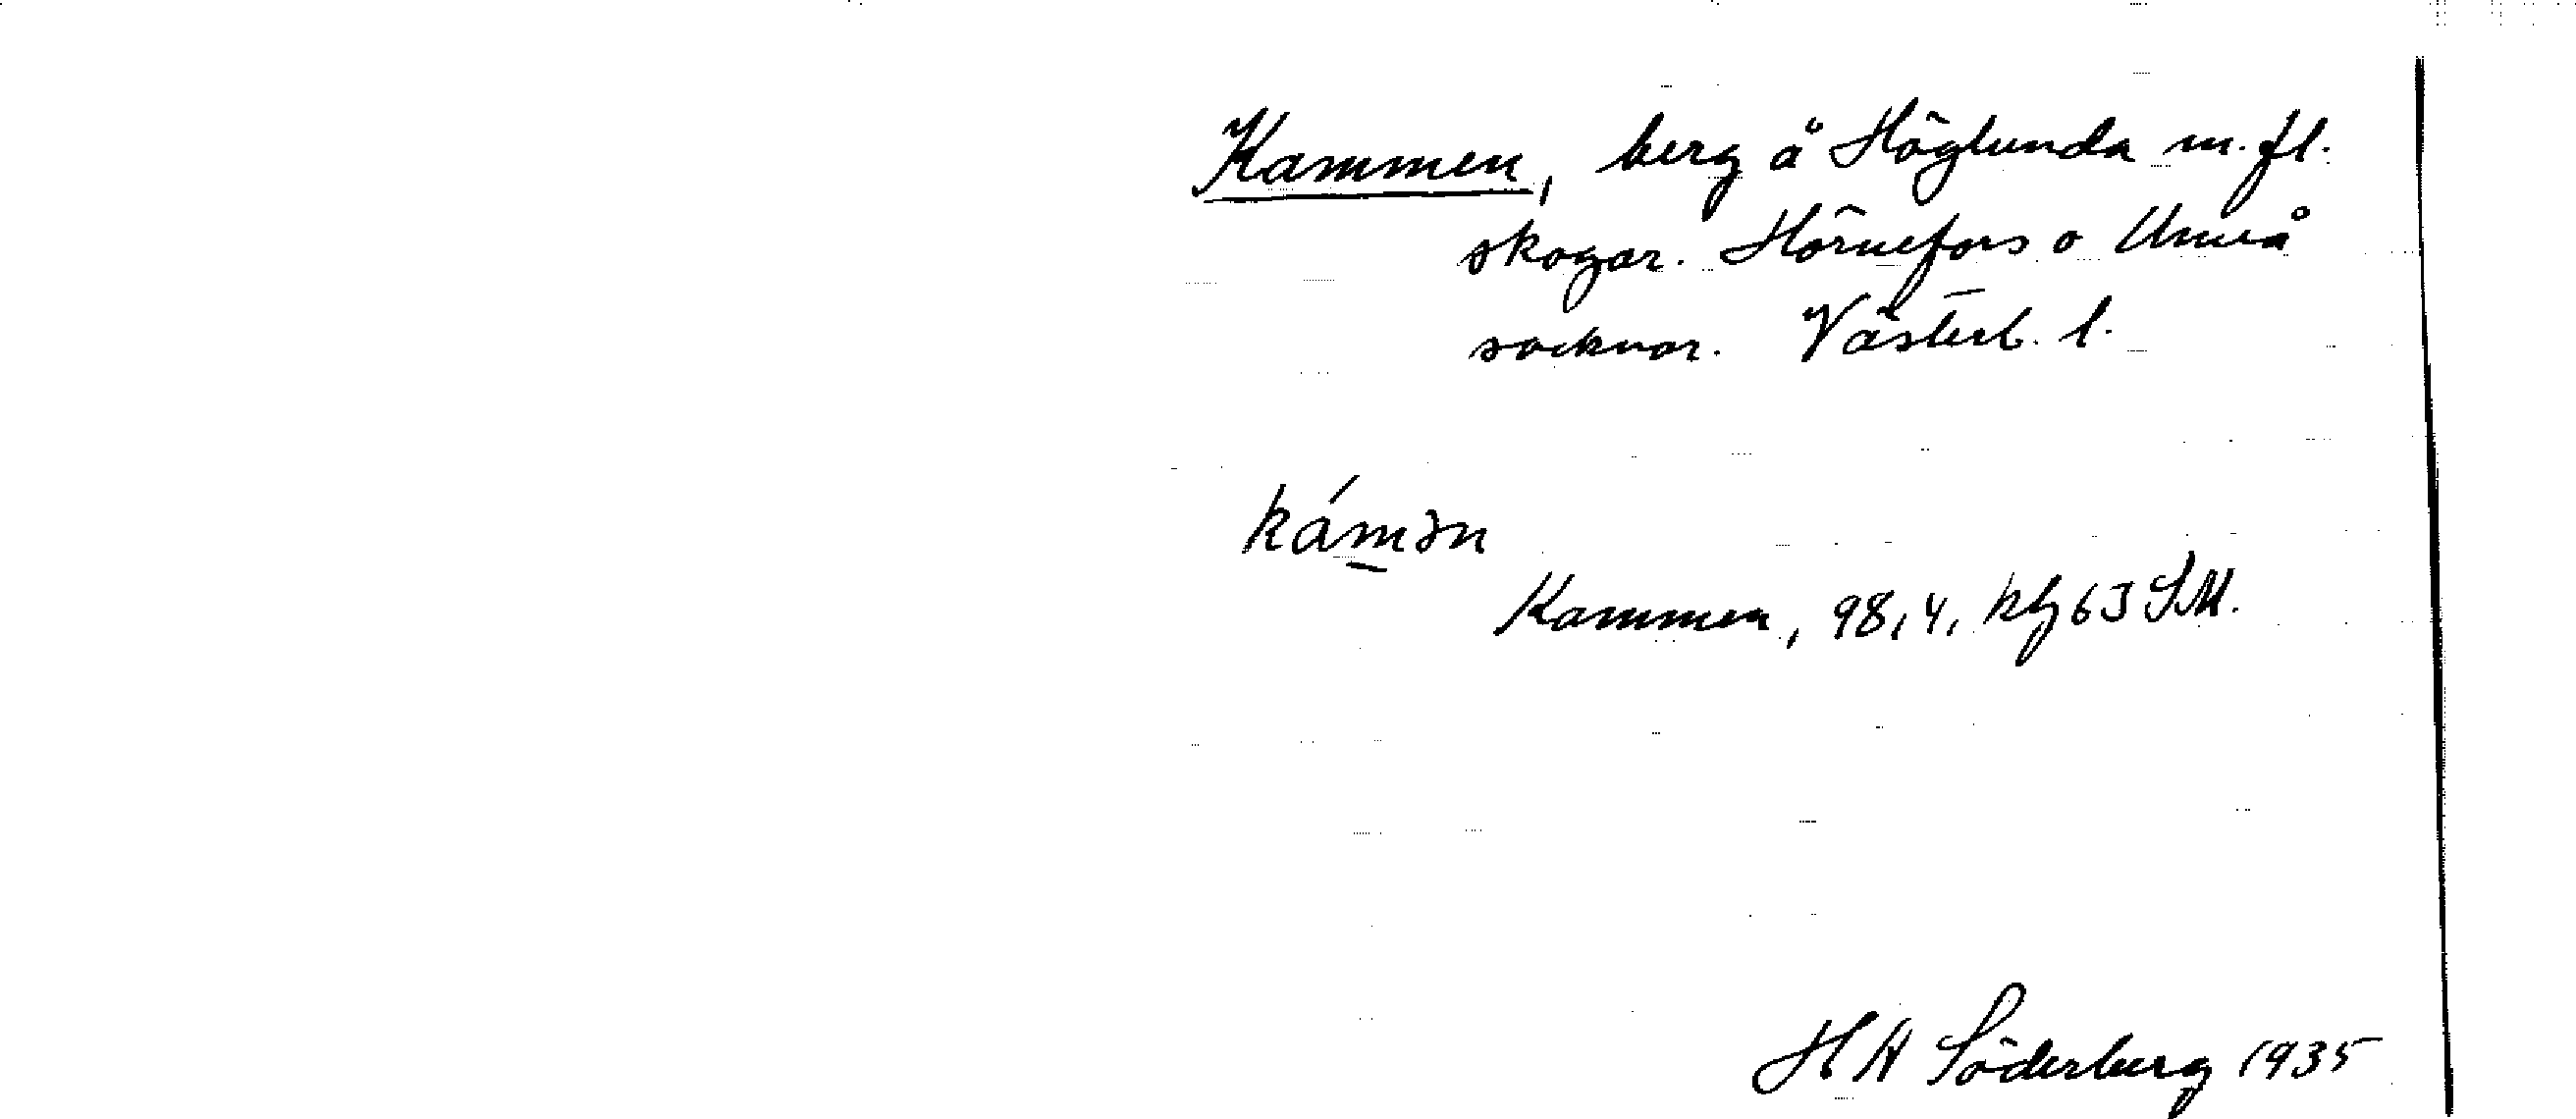 Kammen, berg å Höglunda m. fl.
skogar. Hörnefors o Umeå
socknar. Västerb. l.
kámən
Kammen, 98,4, kbl 63 SM.
H A Söderberg 1935